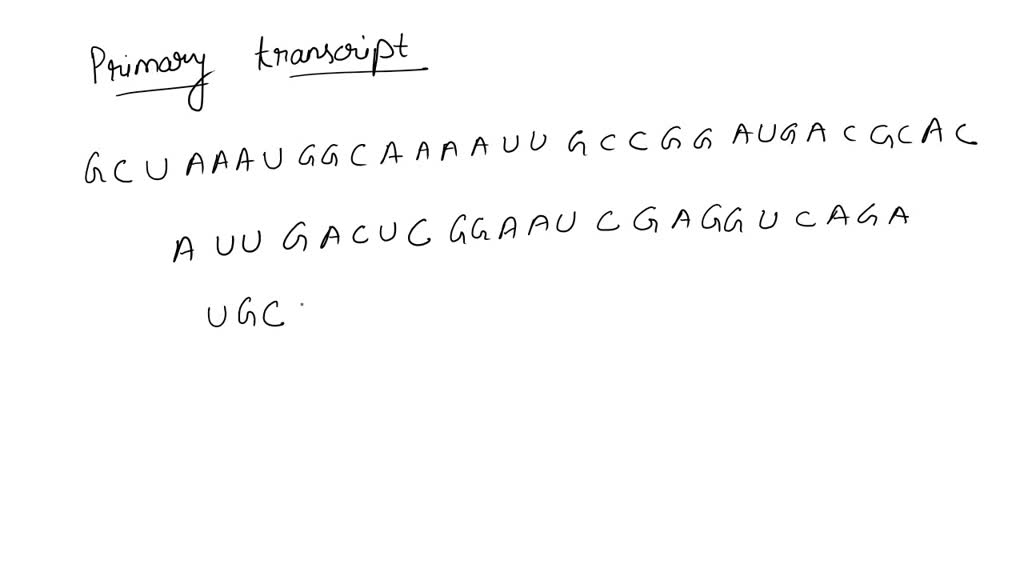 Primary transcript
G C U A A A U G G C A A A A U U G C C G G A U G A C G C A C
A U U G A C U C G G A A U C G A G G U C A G A
U G C